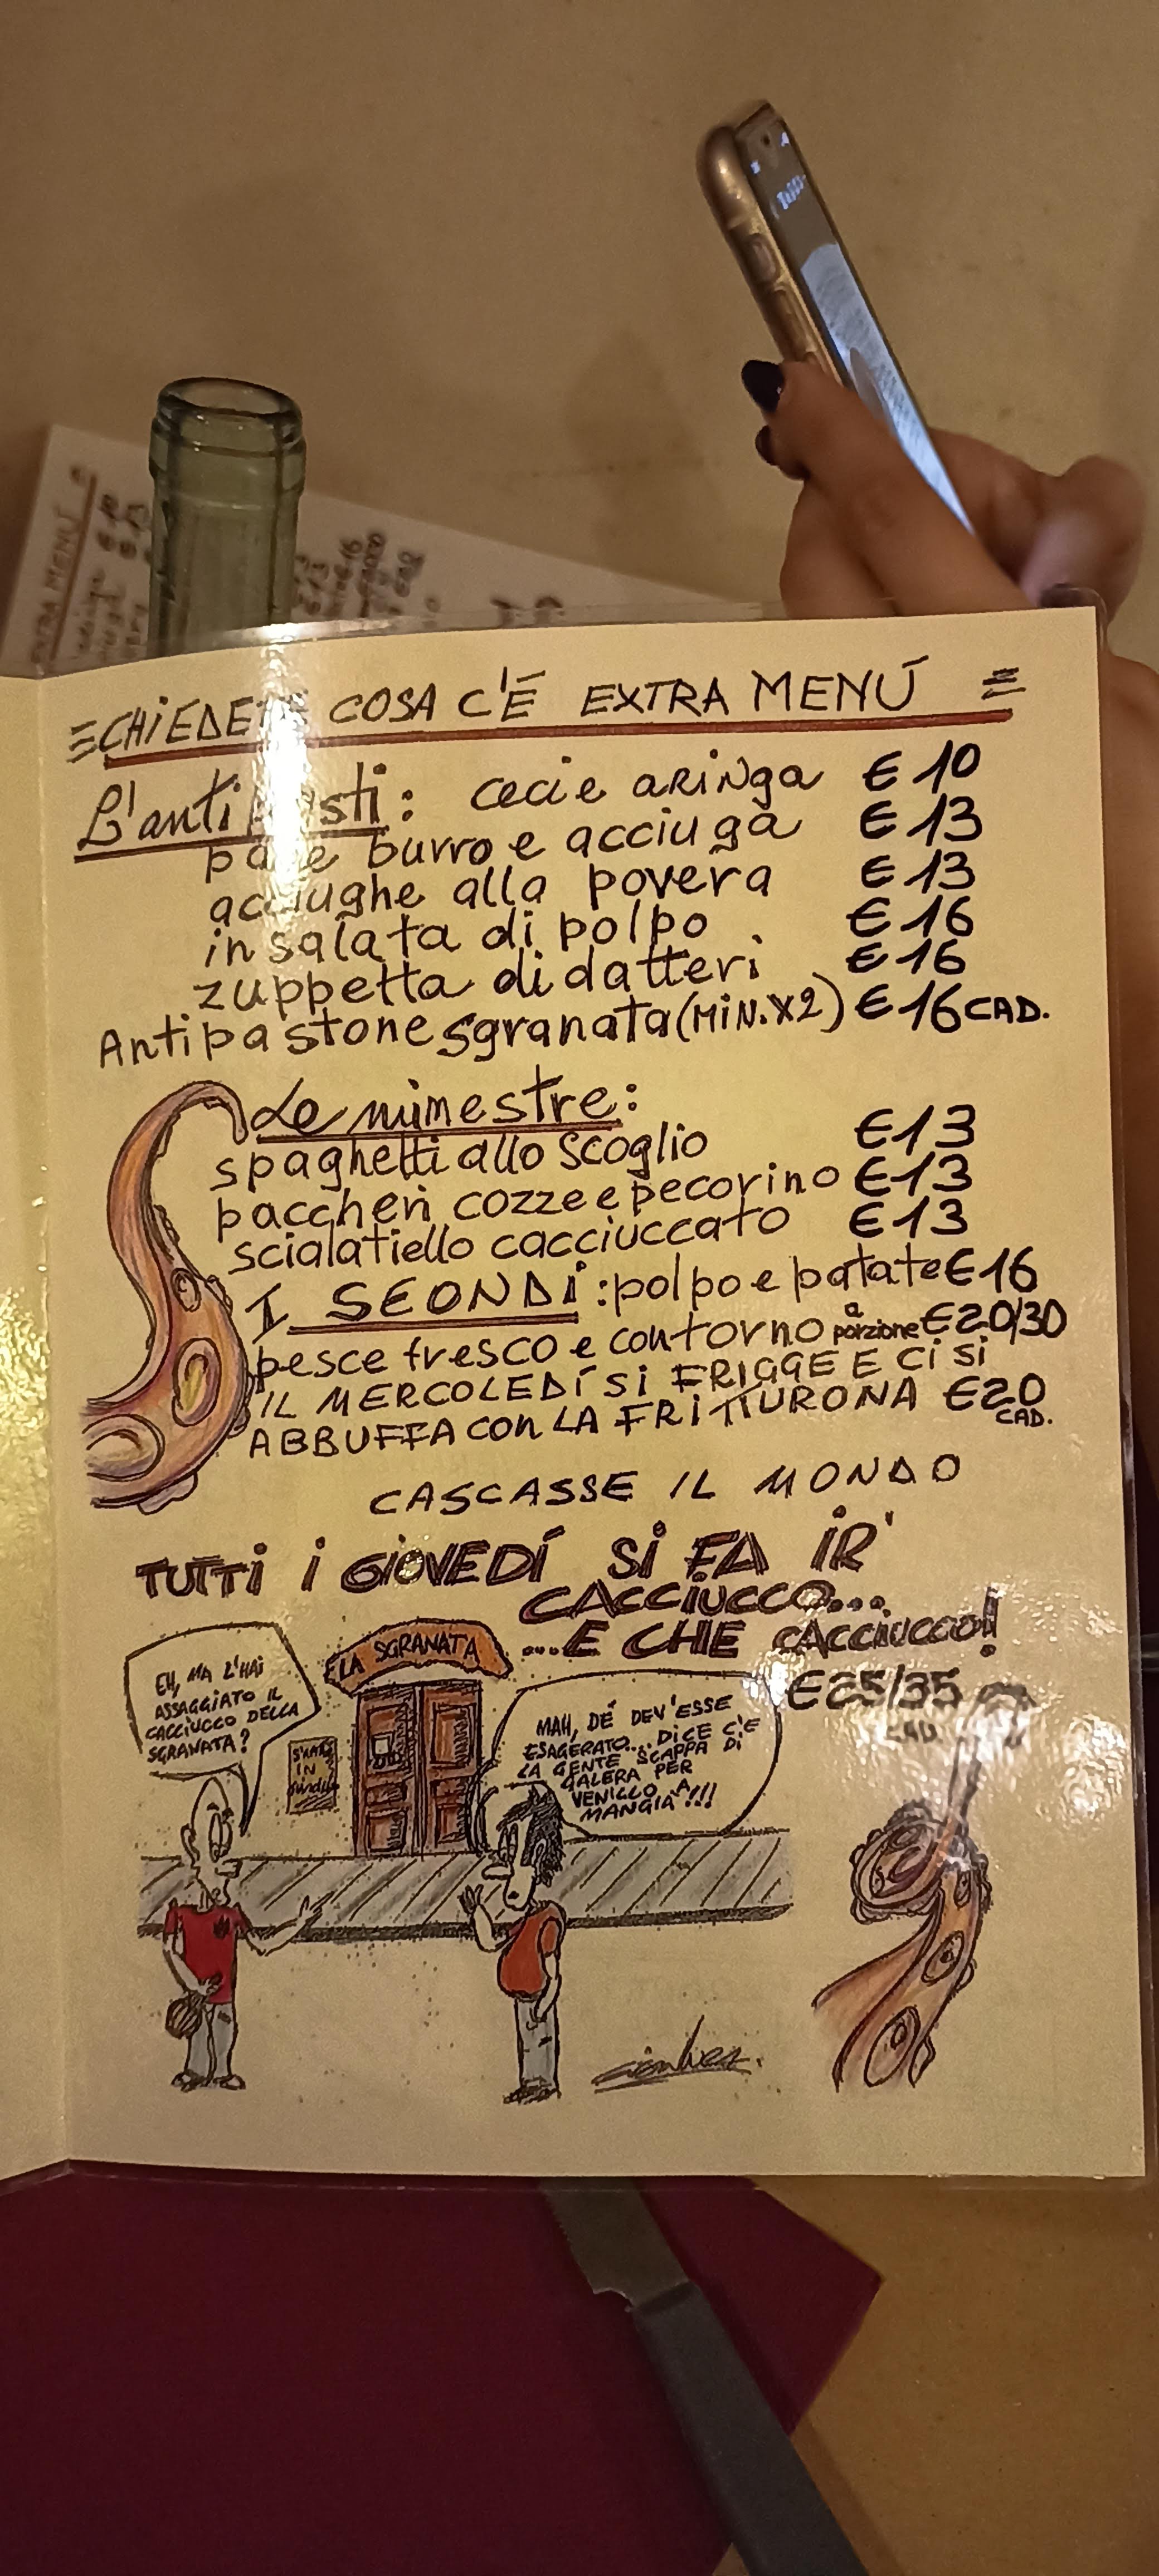 CHIEDETE COSA C'É EXTRA MENÚ
L'antipasti: ceci e aringa €10
pane burro e acciuga €13
acciughe alla povera €13
insalata di polpo €16
zuppetta di datteri €16
Antipastone sgranata (MIN.X2) €16 CAD.
Le mimestre:
spaghetti allo scoglio €13
paccheri cozze e pecorino €13
scialatiello cacciuccato €13
I SEONDI: polpo e patate €16
pesce fresco e contorno a porzione €20/30
IL MERCOLEDÍ SI FRIGGE E CI SI
ABBUFFA CON LA FRITTURONA €20 CAD.
CASCASSE IL MONDO
TUTTI I GIOVEDÍ SI FA IR'
CACCIUCCO...
...E CHE CACCIUCCO!
€25/35
CAD.
LA SGRANATA
EH, MA L'HAI
ASSAGGIATO IL
CACCIUCCO DELLA
SGRANATA?
MAH, DÉ DEV'ESSE
ESAGERATO... DICE C'È
LA GENTE SCAPPA DI
GALERA PER
VENICCO A
MANGIA'!!!
IN
EXTRA MENÚ